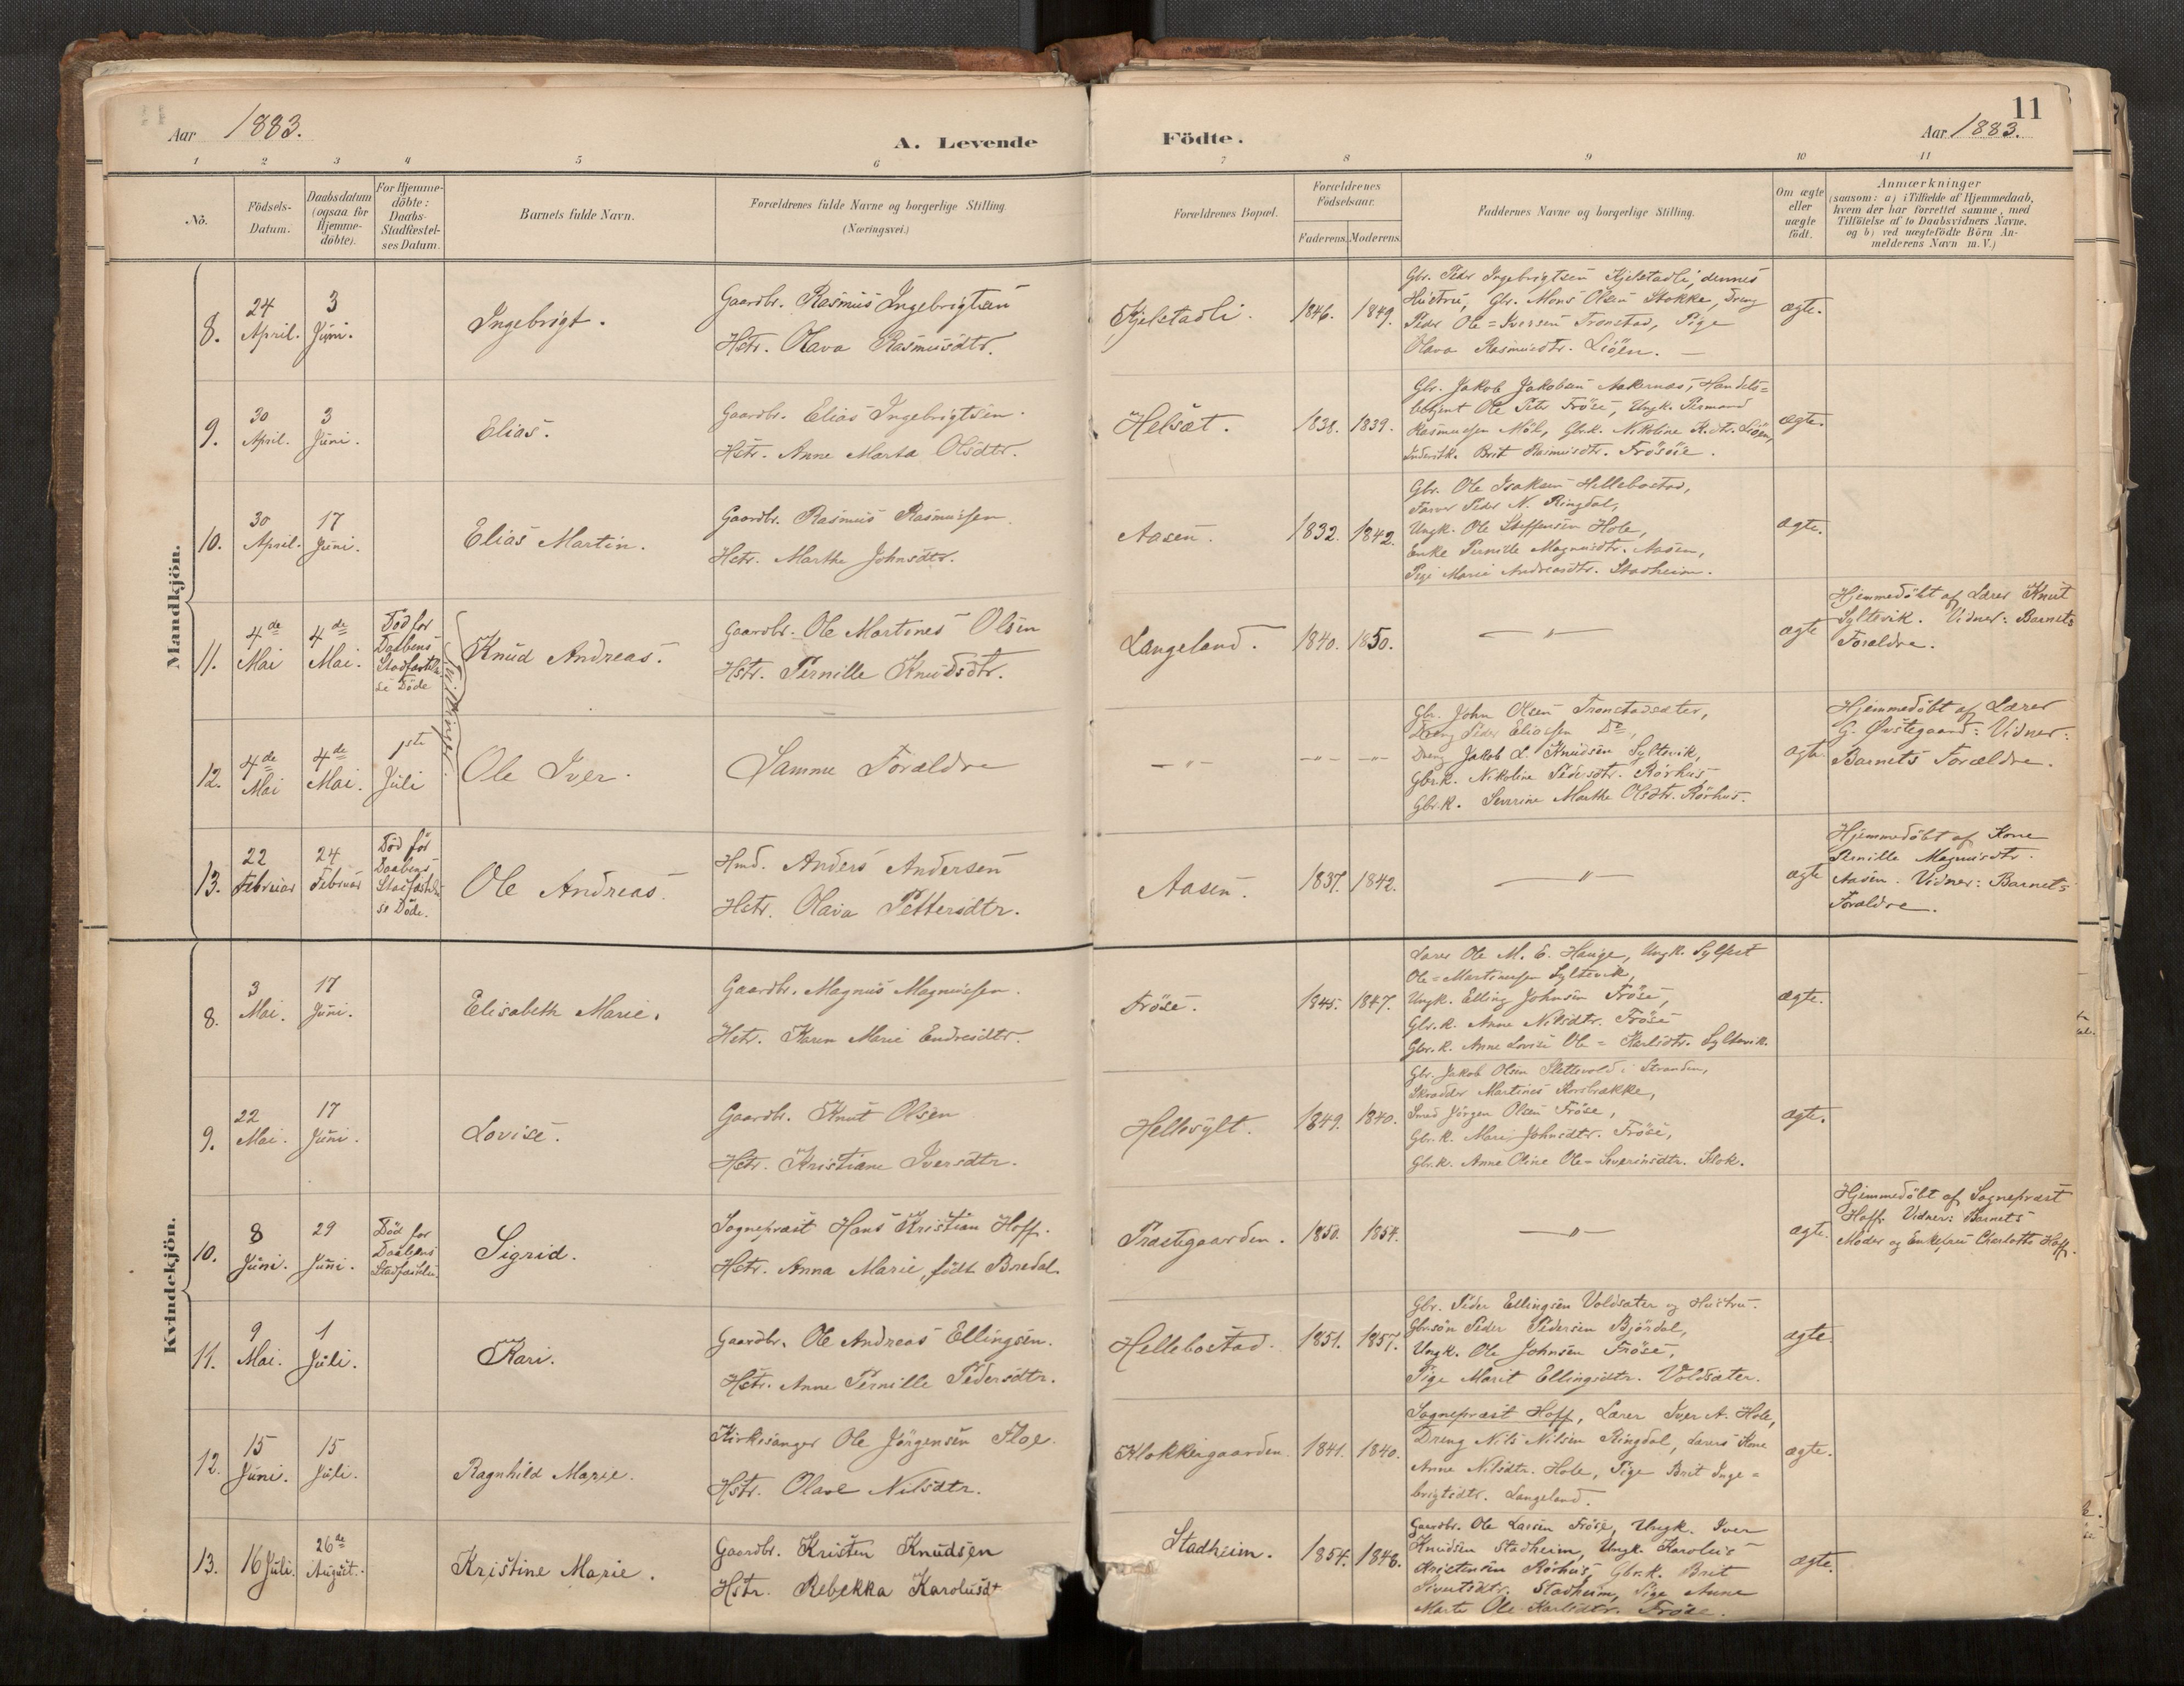 Aar 1883.
A. Levende Födte.
11
Aar 1883.
1 2 3 4 5 6 7 8 9 10 11
No.
Födsels-
Datum.
Daabsdatum
(ogsaa for
Hjemme-
döbte).
For Hjemme-
döbte:
Daabs-
Stadfæstel-
ses Datum.
Barnets fulde Navn.
Forældrenes fulde Navne og borgerlige Stilling
(Næringsvei.)
Forældrenes Bopæl.
Forældrenes
Födselsaar.
Faderens. Moderens.
Faddernes Navne og borgerlige Stilling.
Om ægte
eller
uægte
födt.
Anmærkninger
(saasom: a) i Tilfælde af Hjemmedaab,
hvem der har forrettet samme, med
Tilföielse af to Daabsvidners Navne,
og b) ved uægtefödte Börn An-
melderens Navn m. V.)
Mandkjön.
8.
24
April.
3
Juni.
Ingebrigt.
Gaardbr. Rasmus Ingebrigtsen
Hstr. Olava Rasmusdtr.
Kjelstadli.
1846. 1849.
Gbr. Peder Ingebrigtsen Kjelstadli, dennes
Hustru, Gbr. Mons Olsen Stokke, Dreng
Peder Ole=Iversen Tronstad, Pige
Olava Rasmusdtr. Liöen. —
ægte.
9.
30
April.
3
Juni.
Elias.
Gaardbr. Elias Ingebrigtsen.
Hstr. Anne Marta Olsdtr.
Helsæt.
1838. 1839.
Gbr. Jakob Jakobsen Aakernæs, Handels=
betjent Ole Peter Fröse, Ungk. Permand
Rasmussen Möl, Gbr.k. Nikoline R.dtr. Liöen,
Brit Rasmusdtr. Frösöie.
ægte.
10.
30
April.
17
Juni.
Elias Martin.
Gaardbr. Rasmus Rasmussen.
Hstr. Marthe Johnsdtr.
Aasen.
1832. 1842.
Gbr. Ole Isaksen Hellebostad,
Farver Peder N. Ringdal,
Ungk. Ole Steffensen Hole,
Enke Pernille Magnusdtr. Aasen,
Pige Marie Andreasdtr. Stadheim.
ægte.
11.
4de
Mai
4de
Mai.
Död før
Daabens
Stadfæstelse
se Döde
Tvillinger.
Knud Andreas.
Gaardbr. Ole Martines Olsen
Hstr. Pernille Knudsdtr.
Langeland.
1840. 1850.
— " —
ægte
Hjemmedöbt af Lærer Knut
Syltevik. Vidner: Barnets
Forældre.
12.
4de
Mai
4de
Mai.
1ste
Juli
Ole Iver.
Samme Forældre
— " —
— " — — " —
Gbr. John Olsen Tronstadsæter,
Dreng Peder Eliassen Do,
Dreng Jakob L. Knudsen Syltevik,
Gbr.k. Nikoline Pedersdtr. Rörhus
Gbr.k. Severine Marthe Olsdtr. Rörhus.
ægte
Hjemmedöbt af Lærer
G. Østegaard: Vidner:
Barnets Forældre.
13.
22
Februar
24
Februar
Död før
Daabens
Stadfæstelse
se Döde.
Ole Andreas.
Hmd. Anders Andersen
Hstr. Olava Pettersdtr.
Aasen.
1837. 1842.
— " —
ægte
Hjemmedöbt af Kone
Pernille Magnusdtr.
Aasen. Vidner: Barnets
Forældre.
Kvindekjön.
8.
3
Mai.
17
Juni.
Elisabeth Marie.
Gaardbr. Magnus Magnussen.
Hstr. Karen Marie Endresdtr.
Fröse.
1845. 1847.
Lærer Ole M. E. Hauge, Ungk. Sylfest
Ole=Martinussen Syltevik,
Ungk. Elling Johnsen Fröse,
Gbr.k. Anne Nilsdtr. Fröse
Gbr.k. Anne Lovise Ole=Karlsdtr. Syltevik.
ægte.
9.
22
Mai.
17
Juni.
Lovise.
Gaardbr. Knut Olsen
Hstr. Kristiane Iversdtr.
Hellesylt.
1849. 1840.
Gbr. Jakob Olsen Slettevold i Stranden,
Skrædder Martines Korsbrække,
Smed Jörgen Olsen Fröse,
Gbr.k. Mari Johnsdtr. Fröse,
Gbr.k. Anne Oline Ole=Severinsdtr. Klok.
ægte.
10.
8
Juni.
29
Juni.
Död før
Daabens
Stadfæstelse.
Sigrid.
Sognepræst Hans Kristian Hoff.
Hstr. Anna Marie, födt Bredal.
Præstegaarden.
1850. 1854.
— " —
ægte.
Hjemmedöbt af Sognepræst
Hoff. Vidner: Barnets
Moder og Enkefru Charlotte Hoff.
11.
9
Mai.
1
Juli.
Kari.
Gaardbr. Ole Andreas Ellingsen.
Hstr. Anne Pernille Pedersdtr.
Hellebostad.
1851. 1857.
Gbr. Peder Ellingsen Voldsæter og Hustru.
Gbr.sön Peder Pedersen Björdal,
Ungk. Ole Johnsen Fröse,
Pige Marit Ellingsdtr. Voldsæter.
ægte.
12.
15
Juni.
15
Juli.
Ragnhild Marie.
Kirkesanger Ole Jörgensen Floe.
Hstr. Olave Nilsdtr.
Klokkergaarden.
1841. 1840.
Sognepræst Hoff, Lærer Iver A. Hole,
Dreng Nils Nilsen Ringdal, Lærers Kone
Anne Nilsdtr. Hole, Pige Brit Inge=
brigtsdtr. Langeland.
ægte.
13.
16 Juli.
26de
August.
Kristine Marie.
Gaardbr. Kristen Knudsen
Hstr. Rebekka Karolusdt
Stadheim.
1854. 1846.
Gaardbr. Ole Larsen Fröse, Ungk. Iver
Knudsen Stadheim, Ungk. Karolus
Kristensen Rörhus, Gbr.k. Brit
Sivertsdtr. Stadheim, Pige Anne
Marte Ole Karlsdtr. Fröse.
ægte.